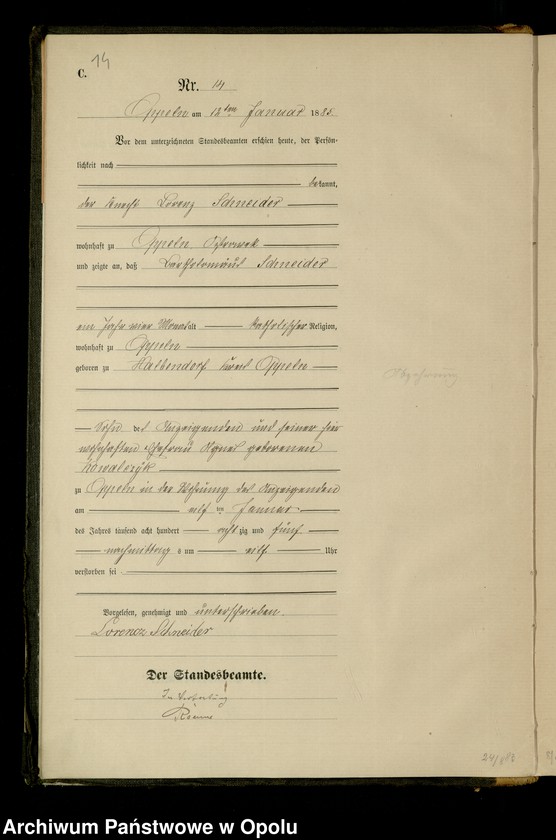 14
C.
Nr. 14
Oppeln am 12ten Januar 1885.
Vor dem unterzeichneten Standesbeamten erschien heute, der Persön-
lichkeit nach
bekannt,
der Knecht Lorenz Schneider
wohnhaft zu Oppeln Ostrowek
und zeigte an, daß Bartholomäus Schneider
ein Jahr vier Monat alt katholischer Religion,
wohnhaft zu Oppeln
geboren zu Halbendorf Kreis Oppeln
Sohn des Anzeigenden und seiner hier
wohnhaften Ehefrau Agnes geborenen
Kowalczyk
zu Oppeln in der Wohnung des Anzeigenden
am elf ten Januar
des Jahres tausend acht hundert acht zig und fünf
nachmittag s um elf Uhr
verstorben sei
Vorgelesen, genehmigt und unterschrieben
Lorenz Schneider
Der Standesbeamte.
In Vertretung
24/88
Archiwum Państwowe w Opolu